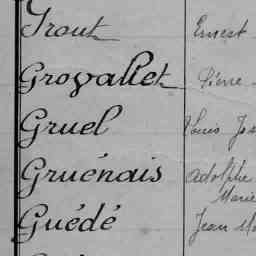 Trout Ernest
Grovallet Pierre
Gruel Louis Jos
Gruénais Adolphe
Marie
Guédé Jean Ma